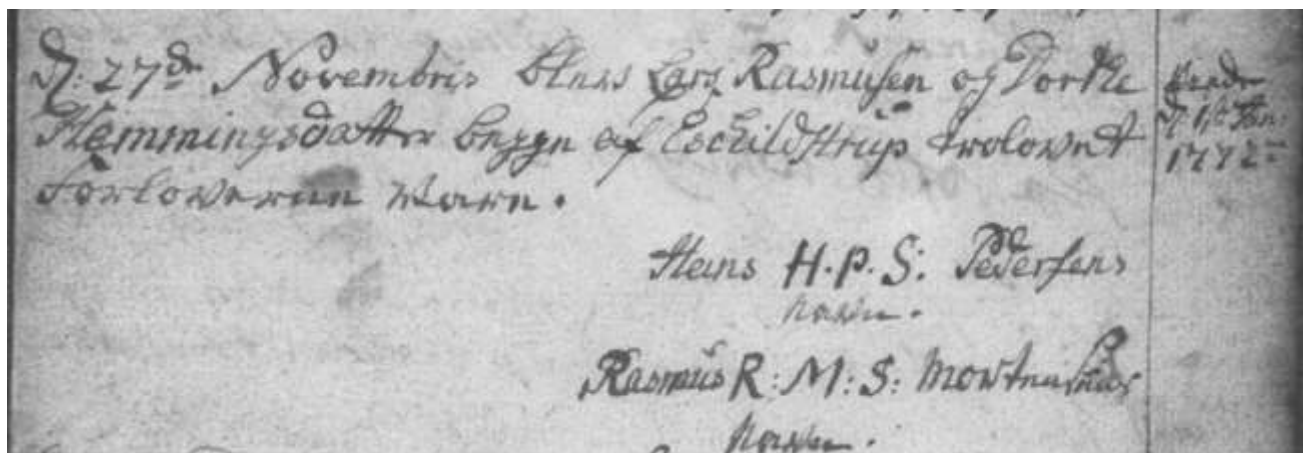 D: 27de Novembris blev Lars Rasmusen og Dorthe
Hemmingsdatter begge af Eschildstrup trolovet
Forloverne vare.
Hans H.P.S: Pedersens
navn.
Rasmus R: M: S: Mortensens
navn.
d. 1ste Jan:
1772